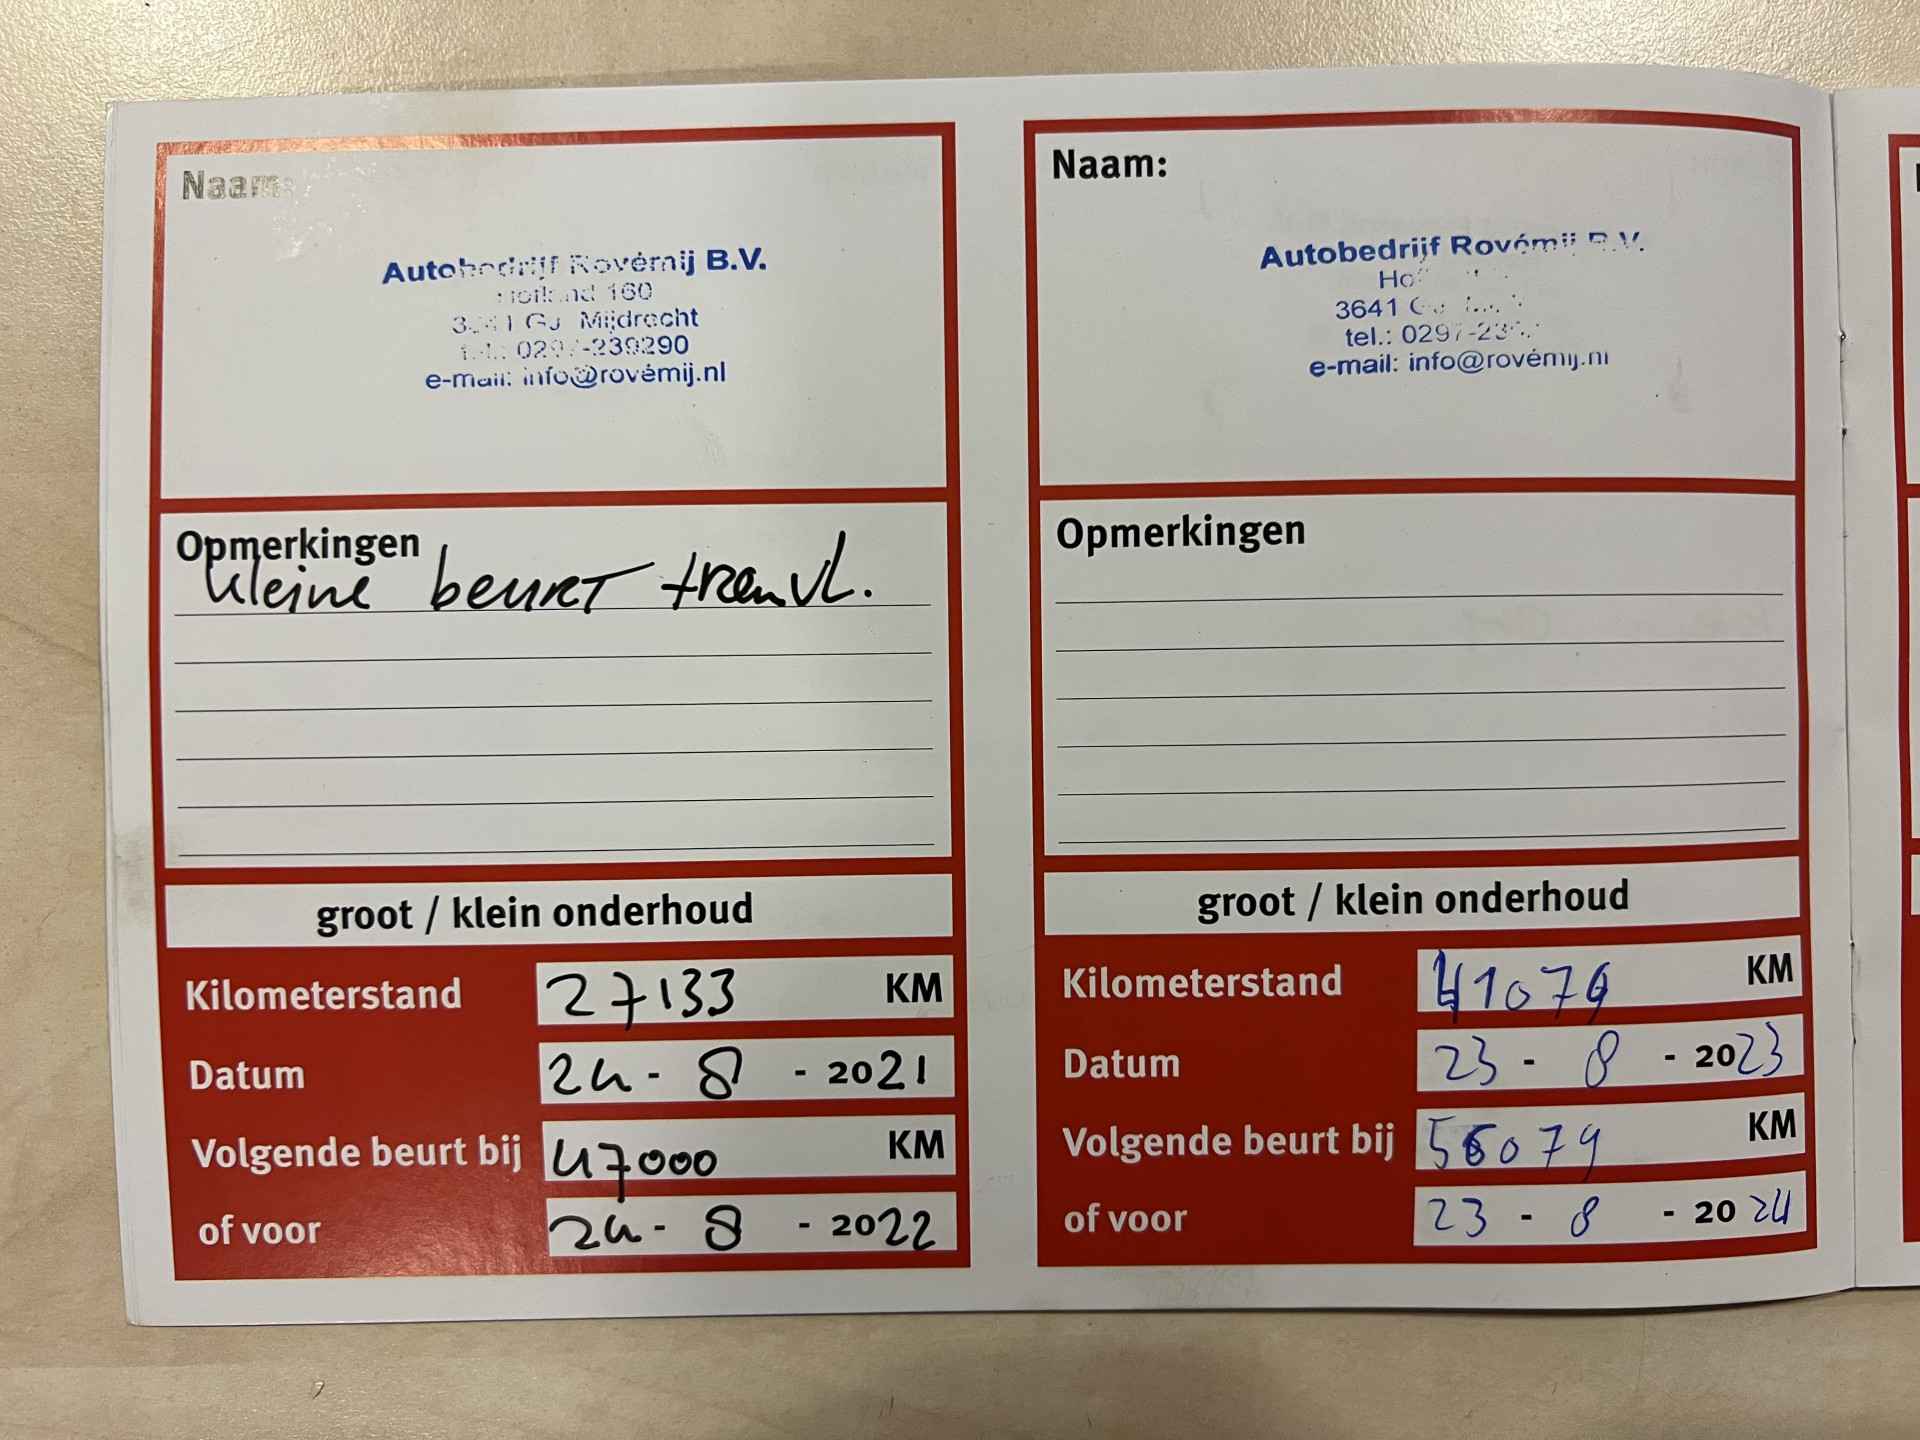 Naam:
Autobedrijf Rovémij B.V.
Hofland 160
3641 GJ Mijdrecht
tel.: 0297-239290
e-mail: info@rovémij.nl
Opmerkingen
kleine beurt
groot / klein onderhoud
Kilometerstand 27133 KM
Datum 24 - 8 - 2021
Volgende beurt bij 47000 KM
of voor 24 - 8 - 2022
Naam:
Autobedrijf Rovémij B.V.
3641
tel.:
e-mail: info@rovémij.nl
Opmerkingen
groot / klein onderhoud
Kilometerstand KM
Datum 23 - 8 - 2023
Volgende beurt bij 56079 KM
of voor 23 - 8 - 2024